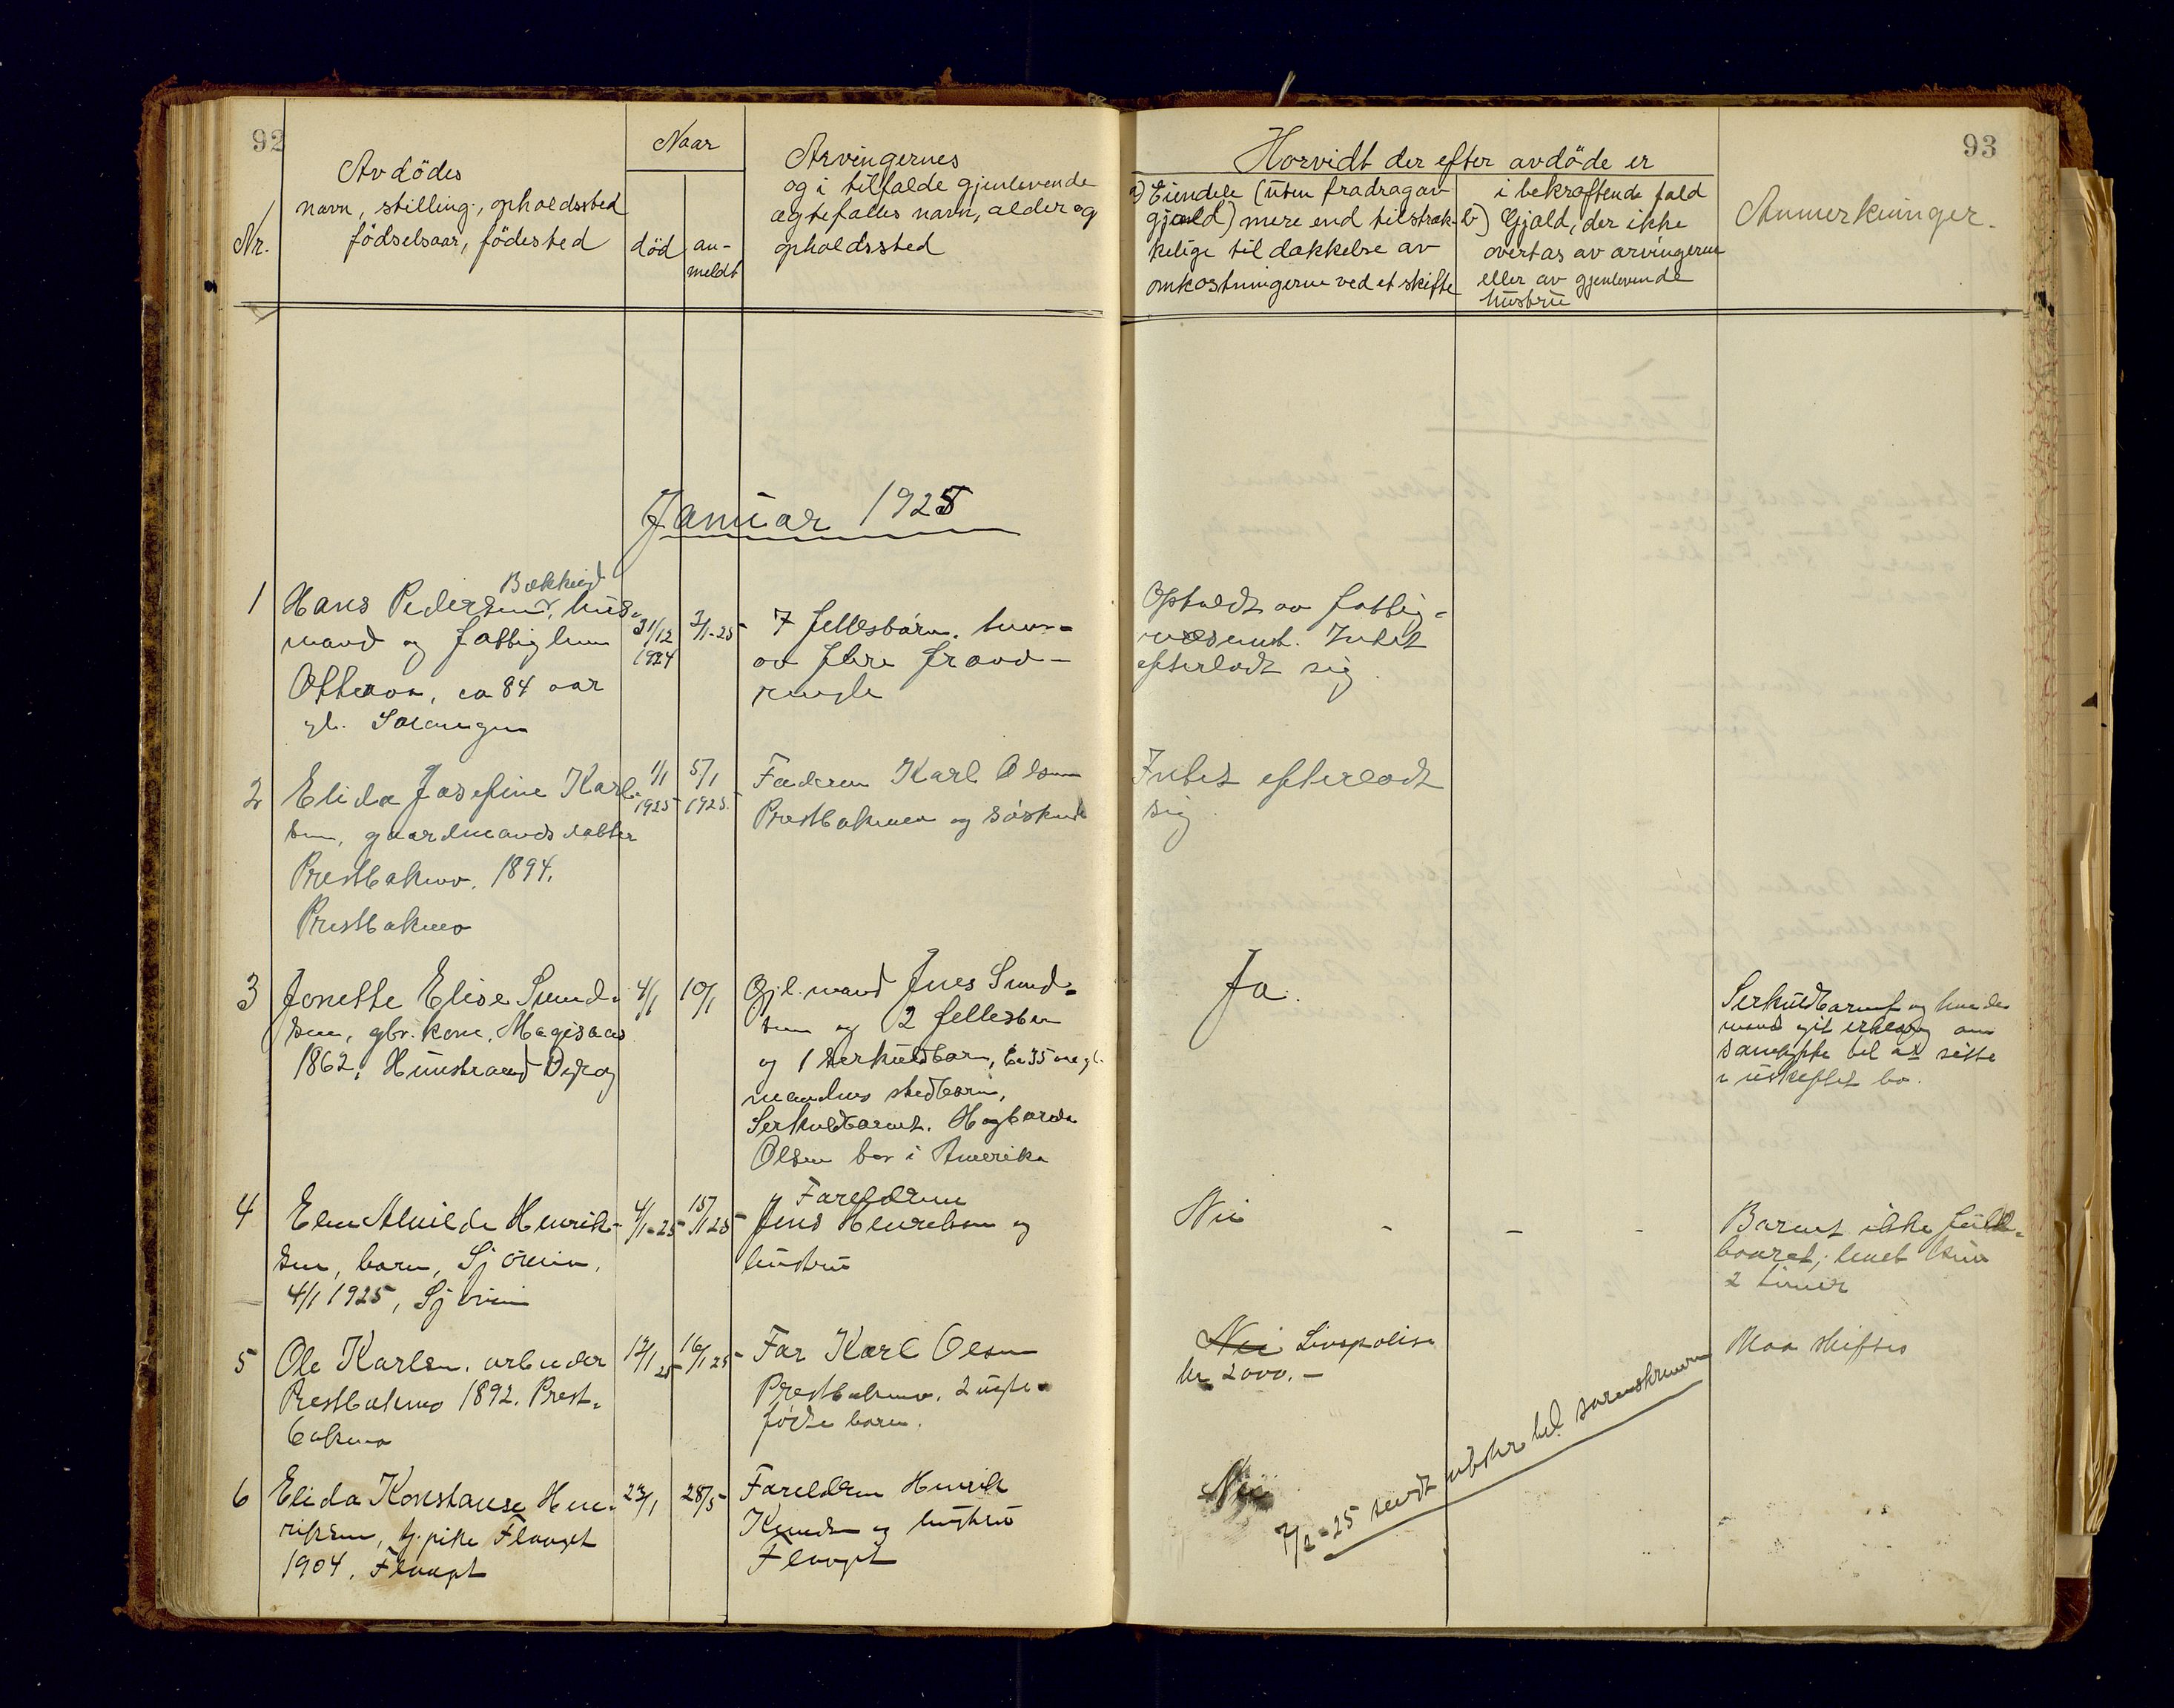 92
Nr.
Avdödes
navn, stilling, opholdssted
födselsaar, födested
Naar
död
an-
meldt
Arvingernes
og i tilfalde gjenlevende
ægtefalles navn, alder og
opholdssted
Horvidt der efter avdöde er
a) Eiendele (uten fradrag av
gjæld) mere end tilstræk-
kelige til dækkelse av
omkostningerne ved et skifte
i bekræftende fald
b) Gjæld, der ikke
overtas av arvingerne
eller av gjenlevende
hustru
Anmerkninger.
93
Januar 1925
1
Bækkeid
Hans Pedersen, hus-
mand og fattiglem
Otteraa, ca 84 aar
gl. Salangen
31/12
1924
2/1-25
7 fellesbörn, hvor-
av flere fravæ-
rende
Opholdt av fattig-
væsenet. Intet
efterladt sig.
2
Elida Josefine Karl-
sen, gaardmandsdatter
Prestbakmo. 1894.
Prestbakmo
1/1
1925
5/1
1925
Faderen Karl Olsen
Prestbakmo og söskende
Intet efterladt
sig
3
Jonette Elise Sund-
sen, gbr. kone, Magisaas
1862, Hunstrand Dyröy
4/1
10/1
Gjl. mand Jnes Sund-
sen og 2 fellesbn
og 1 serkuldbarn, ca 35 aar gl.
mandens stedbarn,
Serkuldbarnet. Hagbarda
Olsen bor i Amerika
Ja.
Serkuldbarnet og hendes
mand git erklæring om
samtykke til at sitte
i uskiftet bo.
4
Elen Alvilde Henrik-
sen, barn, Sjöveien,
4/1 1925, Sjövein
4/1-25
15/1 25
Foreldrene
Jens Henriksen og
hustru
Nei
-
-
-
Barnet ikke fuld-
baaret; levet kun
2 timer
5
Ole Karlsen, arbeider
Prestbakmo 1892. Prest-
bakmo
12/1 25
16/1 25
Far Karl Olsen
Prestbakmo. 2 uegte-
födte barn.
Nei Livspolise
kr 2000.-
Maa skiftes
7/2-25 sendt utskr. til sorenskriveren
6
Elida Konstanse Hen-
riksen, tj. pike Flaaget
1904. Flaagt
23/1
28/5
Foreldren Henrik
Knudsen og hustru
Flaagt
Nei